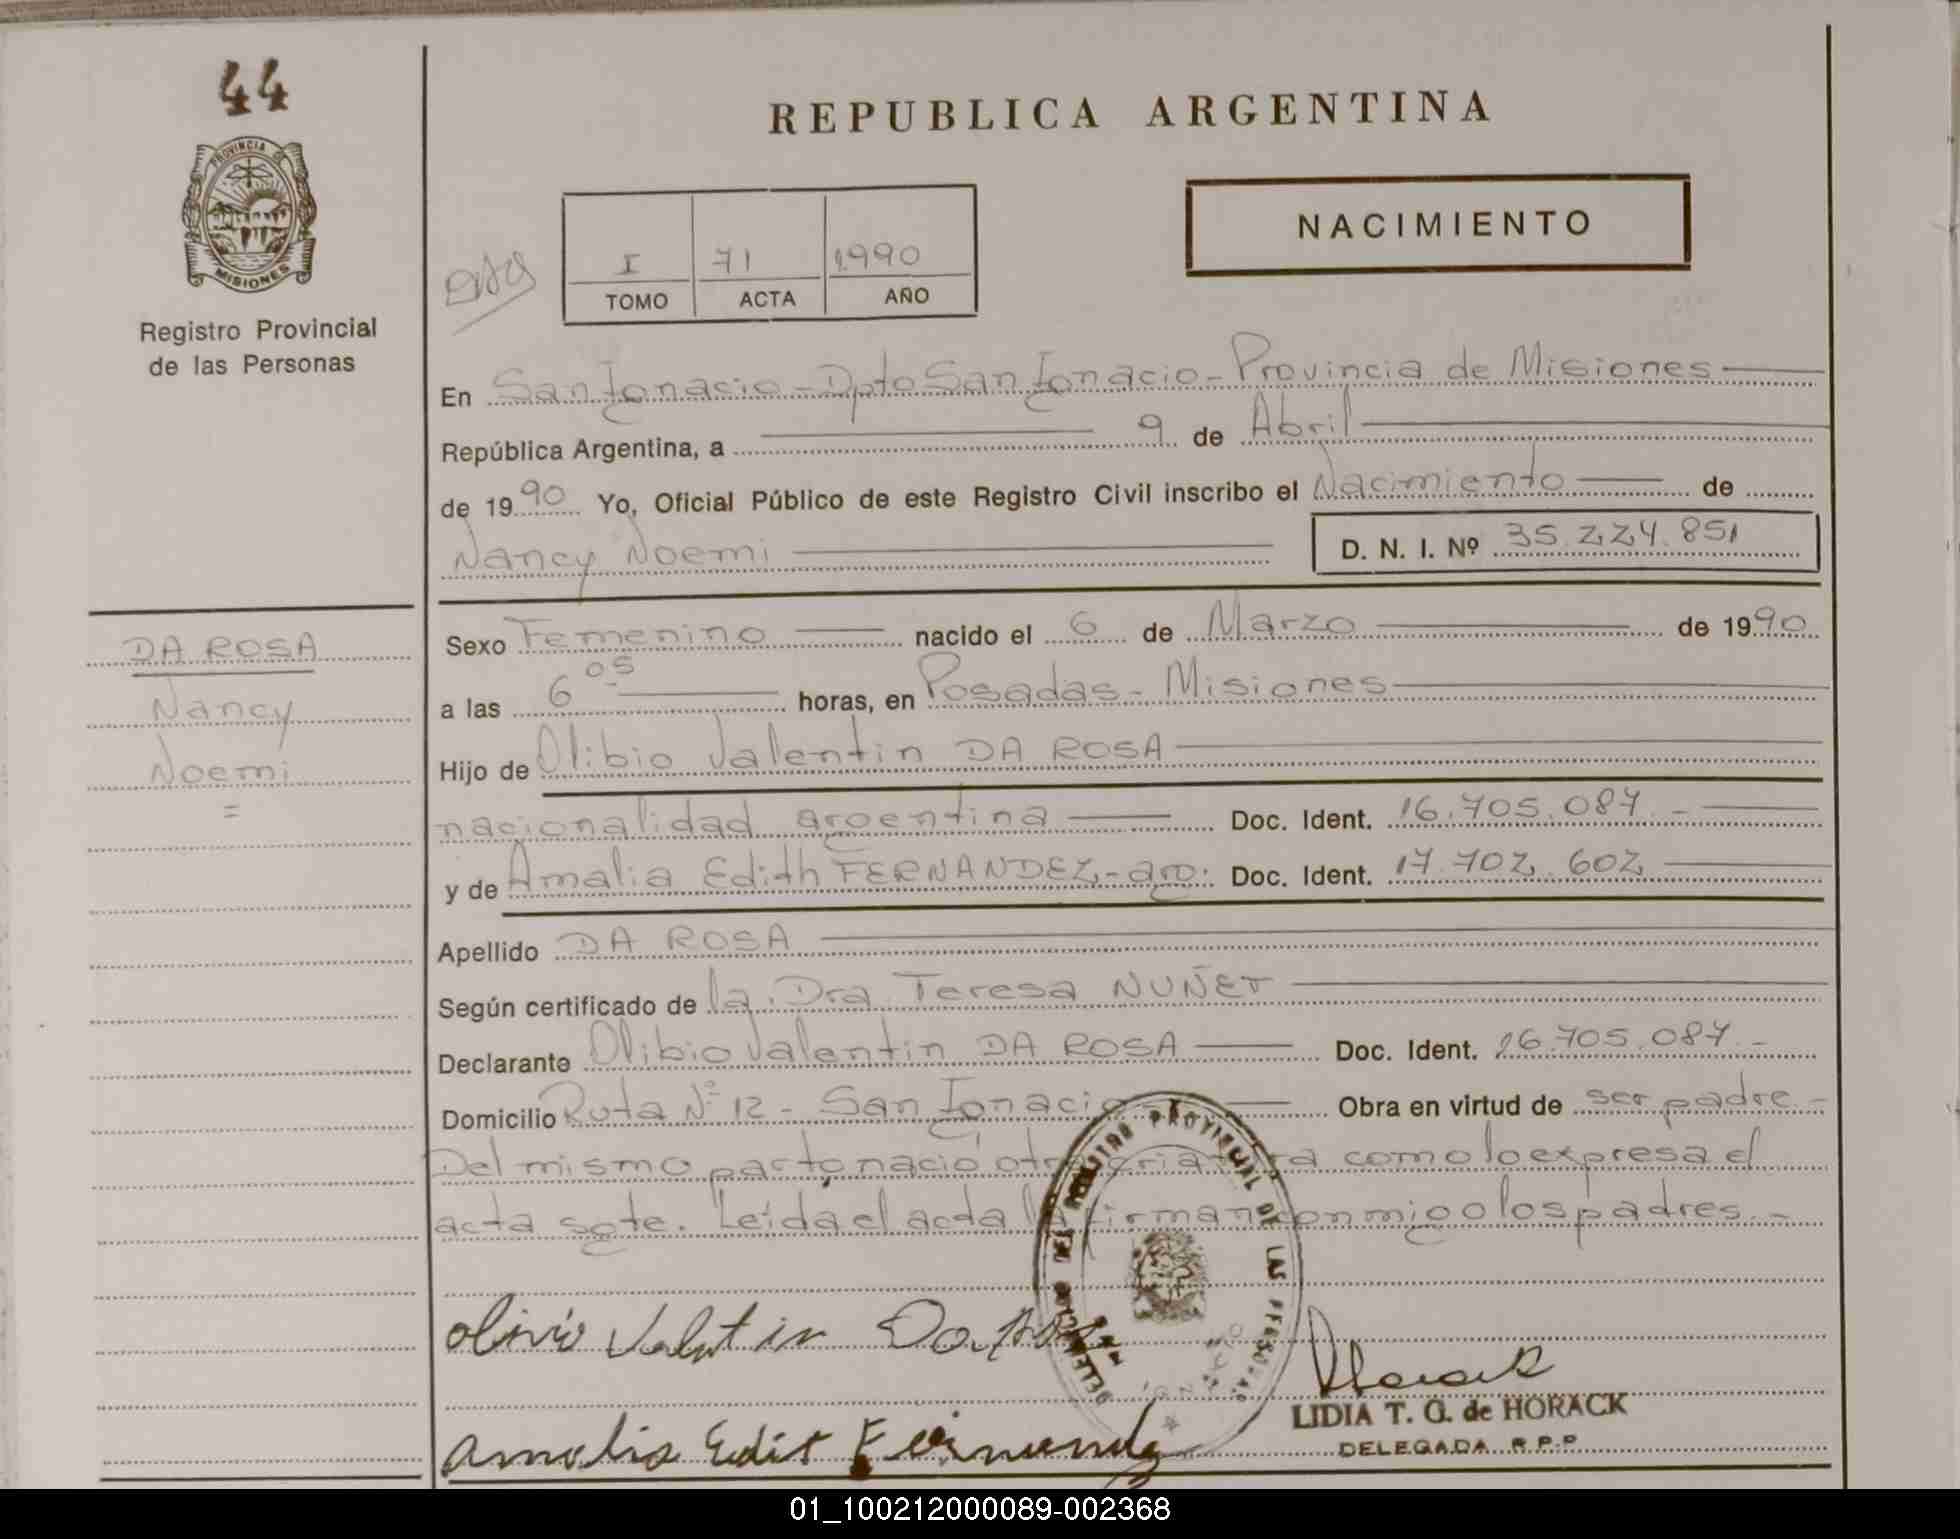 44
PROVINCIA DE
MISIONES
Registro Provincial
de las Personas
REPUBLICA ARGENTINA
NACIMIENTO
I 71 1990
TOMO ACTA AÑO
En San Ignacio - Dpto San Ignacio - Provincia de Misiones
República Argentina, a 9 de Abril
de 1990 Yo, Oficial Público de este Registro Civil inscribo el Nacimiento de
Nancy Noemi D. N. I. Nº 35.224.851
DA ROSA
Nancy
Noemi
=
Sexo Femenino nacido el 6 de Marzo de 1990
a las 6 05 horas, en Posadas - Misiones
Hijo de Olibio Valentin DA ROSA
nacionalidad argentina Doc. Ident. 16.705.087.-
y de Amalia Edith FERNANDEZ - arg. Doc. Ident. 17.702.602
Apellido DA ROSA
Según certificado de la Dra. Teresa NUÑET
Declarante Olibio Valentin DA ROSA Doc. Ident. 16.705.087.-
Domicilio Ruta Nº 12 - San Ignacio Obra en virtud de ser padre.-
Del mismo parto nació otra criatura como lo expresa el
acta sgte. Leida el acta la firman conmigo los padres.-
olivio Valentin Da Rosa
Amalia Edit Fernandez
PROVINCIAL DE LAS PERSONAS
Horack
LIDIA T. G. de HORACK
DELEGADA R.P.P.
01_100212000089-002368